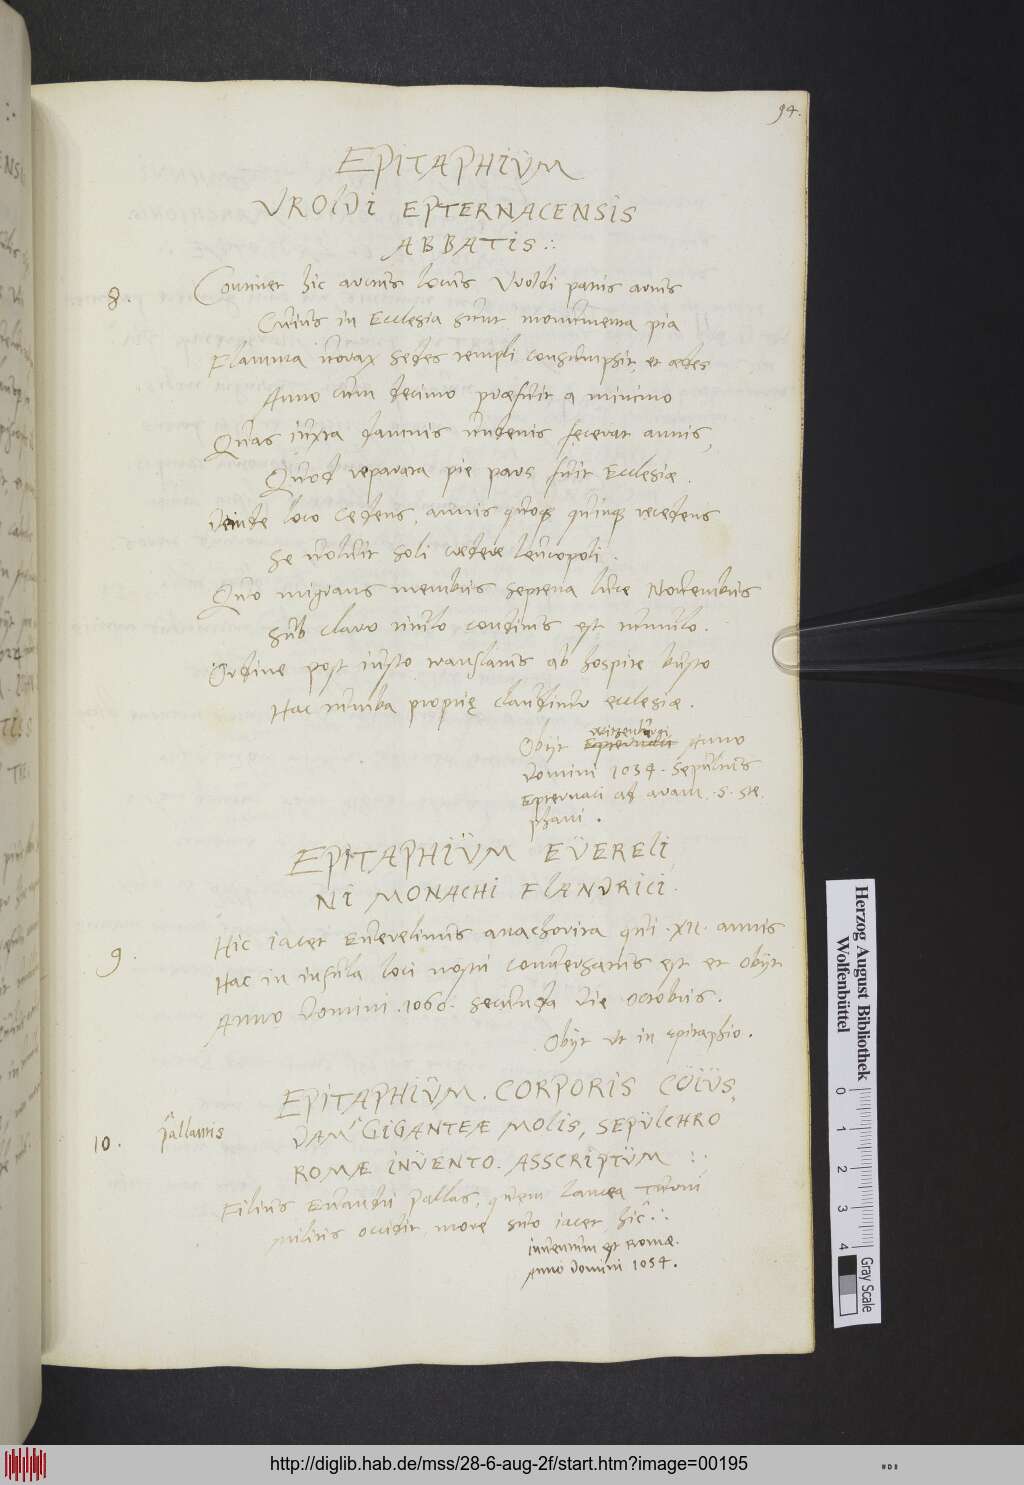 94.
EPITAPHIVM
VROLDI EPTERNACENSIS
ABBATIS :.
8. Continet hic arctus locus Vroldi patris artus
Cuius in Ecclesia sunt monumenta pia
Flamma vorax sedes templi consumpsit, et ædes
Anno cum decimo præfuit a minimo
Quas iuxta damnis undenis fecerat annis,
Quod reparata pie pars fuit Ecclesiæ.
Deinde loco cedens, annis quoq quinq recedens
Se voluit soli credere leucopoli.
Quo migrans membris septena luce Novembris
Sub claro titulo conditus est tumulo.
Ordine post iusto translatus ab hospite busto
Hac tumba proprię clauditur ecclesiæ.
Obijt Epternaci witzenburgi Anno
Domini 1034. Sepultus
Epternaci ad aram .S. Ste
phani.
EPITAPHIVM EVERELI
NI MONACHI FLANDRICI.
9. Hic iacet Everelinus anachorita qui .XII. annis
Hac in insula loci nostri conversatus est et obijt
Anno Domini .1066. secunda die octobris.
Obijt ut in epitaphio.
EPITAPHIVM. CORPORIS CVIVS,
10. Pallantis
DAM GIGANTEÆ MOLIS, SEPVLCHRO
ROMÆ INVENTO. ASSCRIPTVM :.
Filius Evandri Pallas, quem lancea Turni
militis occidit, more suo iacet hic :.
inventum est Romæ.
Anno Domini 1054.
Herzog August Bibliothek
Wolfenbüttel
0 1 2 3 4
Gray Scale
http://diglib.hab.de/mss/28-6-aug-2f/start.htm?image=00195